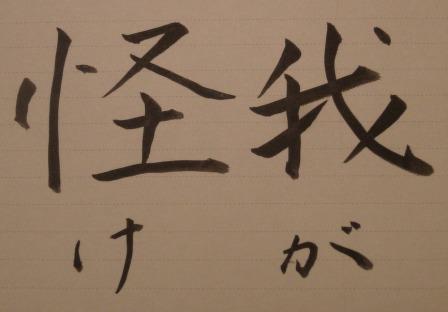 怪我
けが